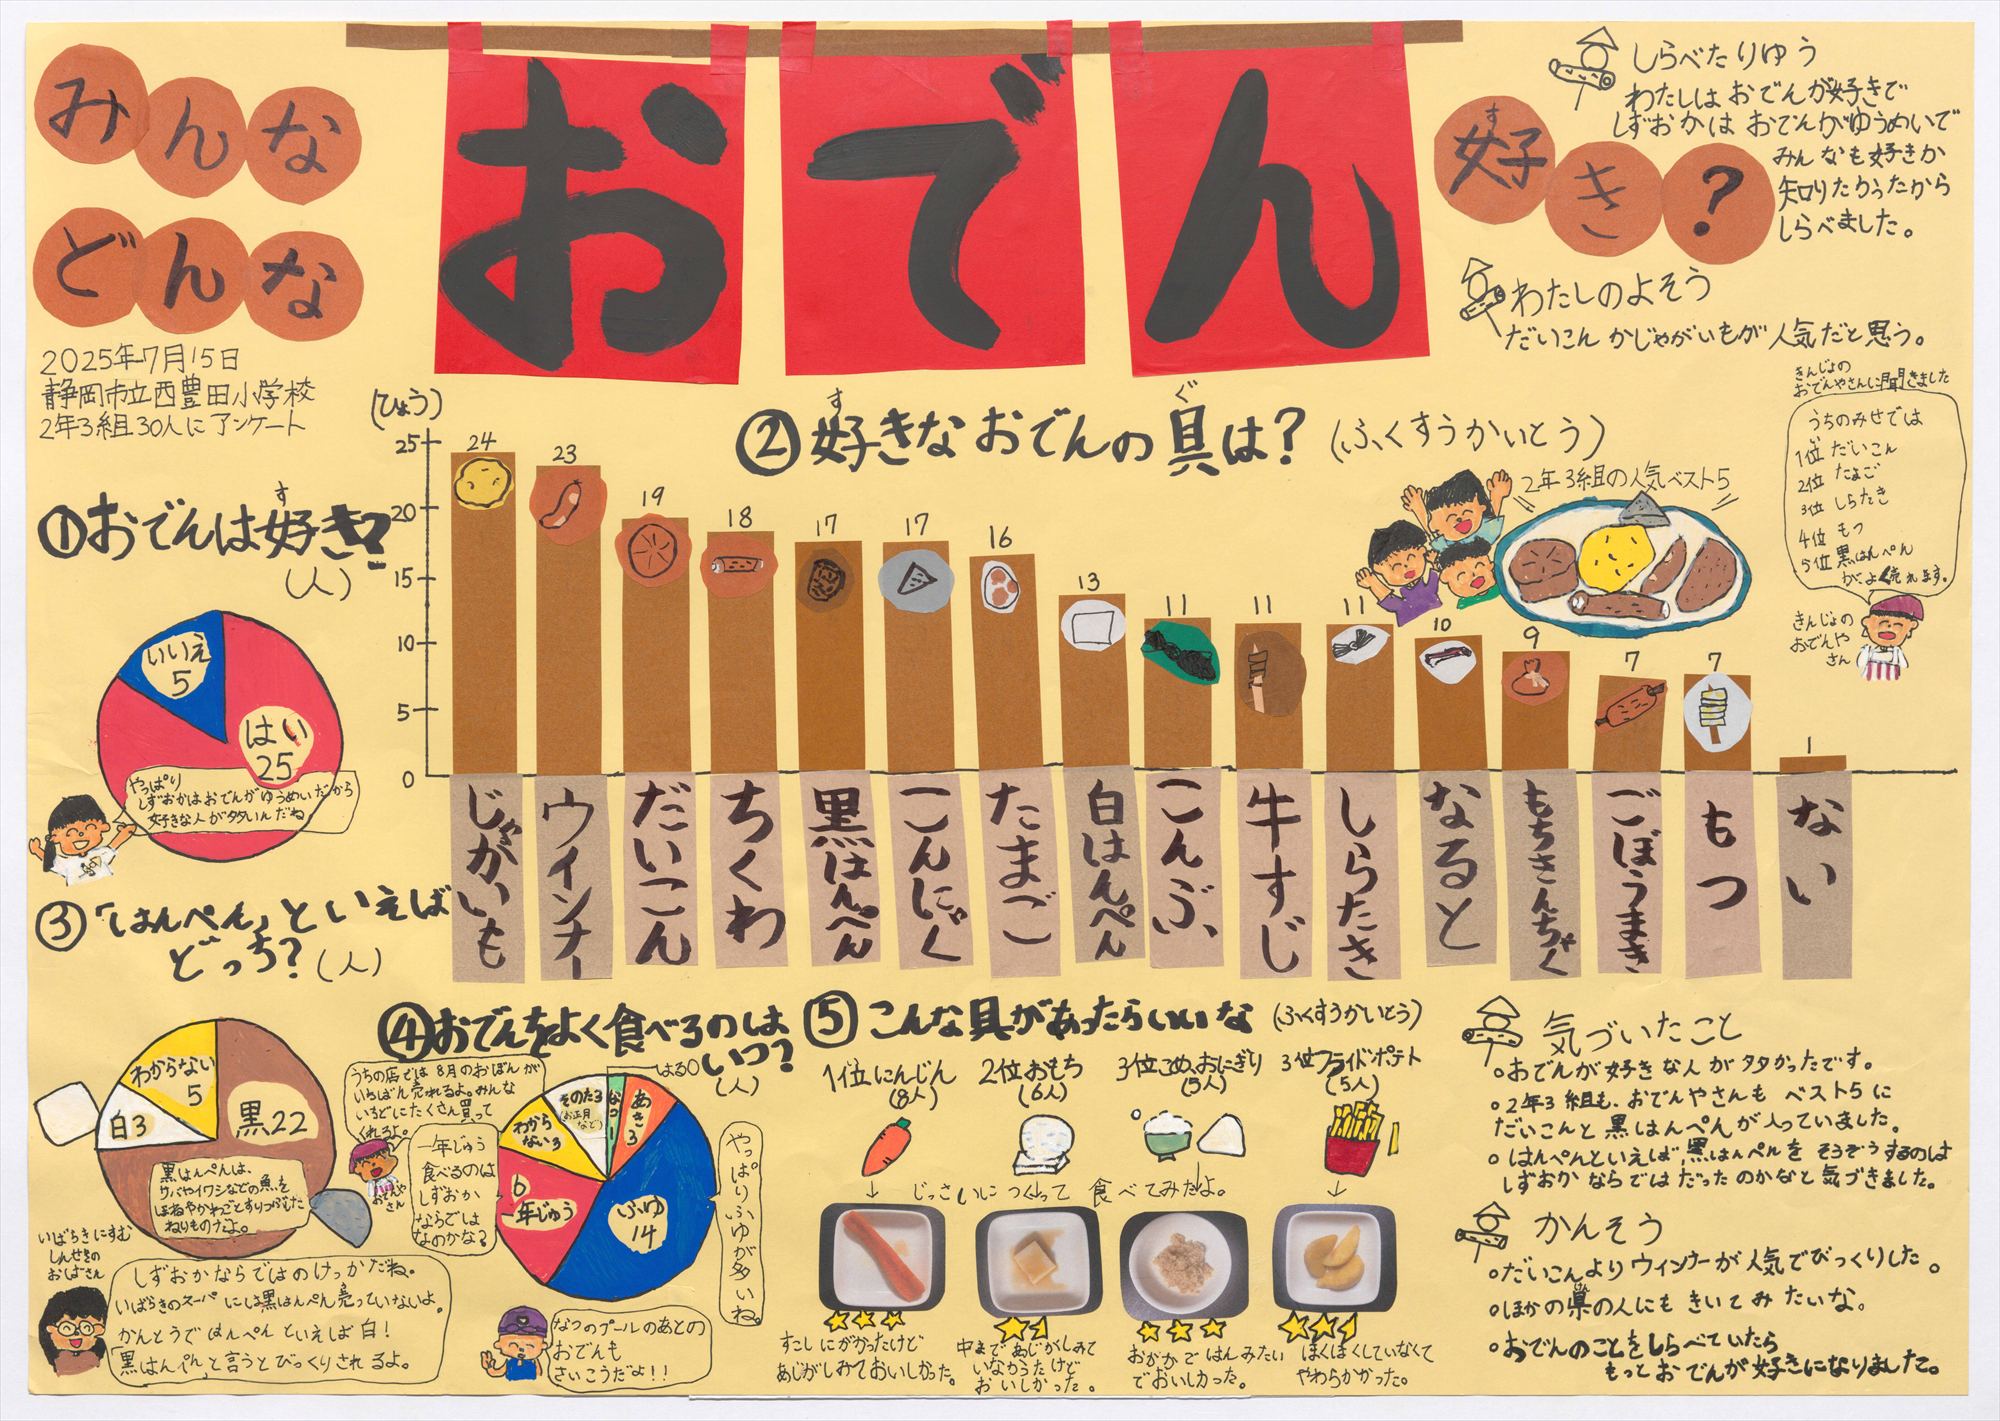 みんな
どんな
おでん
好き?
す
2025年7月15日
静岡市立西豊田小学校
2年3組30人にアンケート
しらべたりゆう
わたしはおでんが好きで
しずおかはおでんがゆうめいで
みんなも好きか
知りたかったから
しらべました。
わたしのよそう
だいこんかじゃがいもが人気だと思う。
①おでんは好き?
す
(人)
いいえ
5
はい
25
やっぱり
しずおかはおでんがゆうめいだから
好きな人が多いんだね。
②好きなおでんの具は?(ふくすうかいとう)
す
ぐ
(ひょう)
25
20
15
10
5
0
24
23
19
18
17
17
16
13
11
11
11
10
9
7
7
1
じゃがいも
ウインナー
だいこん
ちくわ
黒はんぺん
こんにゃく
たまご
白はんぺん
こんぶ
牛すじ
しらたき
なると
もちきんちゃく
ごぼうまき
もつ
ない
2年3組の人気ベスト5
きんじょの
おでんやさんに聞きました
うちのみせでは
1位 だいこん
2位 たまご
3位 しらたき
4位 もつ
5位 黒はんぺん
がよく売れます。
きんじょの
おでんや
さん
③「はんぺん」といえば
どっち?(人)
わからない
5
白3
黒22
黒はんぺんは、
サバやイワシなどの魚を
ほねやかわごとすりつぶした
ねりものだよ。
いばらきにすむ
しんせきの
おばさん
しずおかならではのけっかだね。
いばらきのスーパーには黒はんぺん売っていないよ。
かんとうではんぺんといえば白!
「黒はんぺん」と言うとびっくりされるよ。
④おでんをよく食べるのは
いつ?
(人)
うちの店では8月のおぼんが
いちばん売れるよ。みんな
いろどにたくさん買って
くれるよ。
おでんや
さん
一年じゅう
食べるのは
しずおか
ならでは
なのかな?
はる0
あき
3
なつ
1
そのた3
(お正月
など)
わから
ない3
6
一年じゅう
ふゆ
14
やっぱりふゆが多いね。
なつのプールのあとの
おでんも
さいこうだよ!!
⑤こんな具があったらいいな(ふくすうかいとう)
1位にんじん
(8人)
2位おもち
(6人)
3位こめ、おにぎり
(5人)
3位フライドポテト
(5人)
じっさいにつくって食べてみたよ。
すこしにがかったけど
あじがしみておいしかった。
中まであじがしみて
いなかったけど
おいしかった。
おかかではんみたい
でおいしかった。
ほくほくしていなくて
やわらかかった。
気づいたこと
・おでんが好きな人が多かったです。
・2年3組も、おでんやさんもベスト5に
だいこんと黒はんぺんが入っていました。
・はんぺんといえば、黒はんぺんをそうぞうするのは
しずおかならではだったのかなと気づきました。
かんそう
・だいこんよりウィンナーが人気でびっくりした。
・ほかの県の人にもきいてみたいな。
・おでんのことをしらべていたら
もっとおでんが好きになりました。